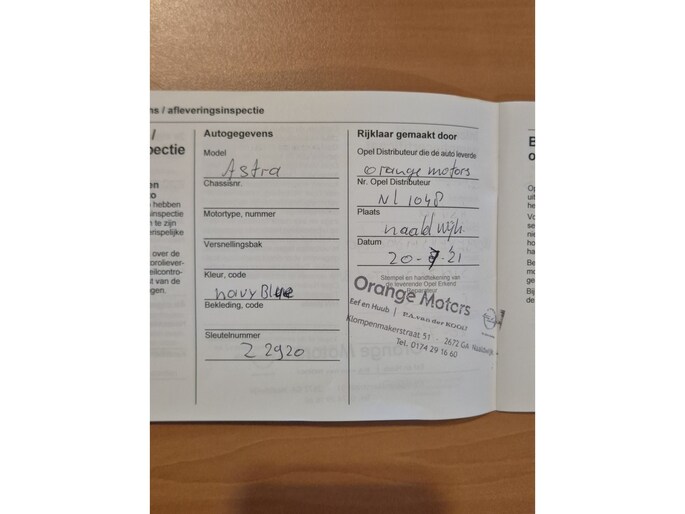 ns / afleveringsinspectie
/
pectie
en
o
hebben
inspectie
te zijn
enspelijke
over de
orolievers-
eilcontro-
t van de
gen.
Autogegevens
Model
Astra
Chassisnr.
Motortype, nummer
Versnellingsbak
Kleur, code
navy Blue
Bekleding, code
Sleutelnummer
Z 2920
Rijklaar gemaakt door
Opel Distributeur die de auto leverde
orange motors
Nr. Opel Distributeur
NL 1048
Plaats
naaldwijk
Datum
20- -21
Stempel en handtekening van
de leverende Opel Erkend
Reparateur
Orange Motors
Eef en Huub | P.A. van der KOOIJ
Klompenmakerstraat 51 - 2672 GA Naaldwijk
Tel. 0174 29 16 60
B
o
Op
uit
he
Vo
se
nie
ho
ha
Be
mo
Bij
de